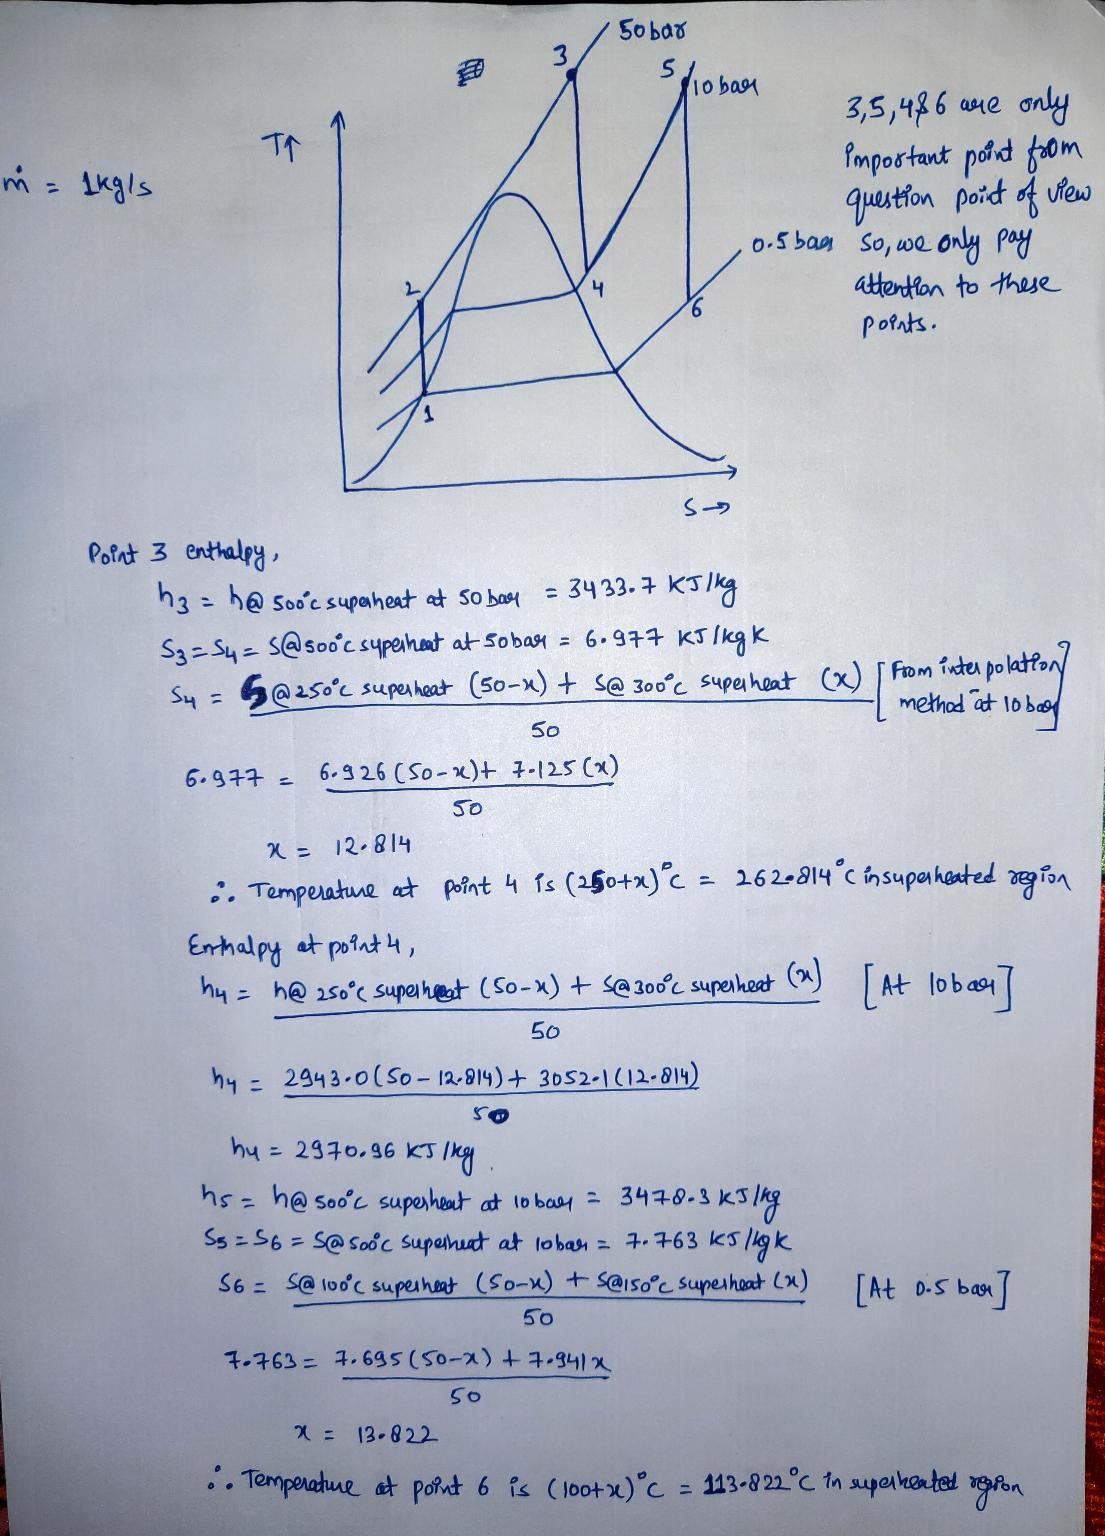 50 bar
3
5
10 bar
T↑
ṁ = 1kg/s
3,5,4&6 are only
important point from
question point of view
so, we only pay
attention to these
points.
0.5 bar
2
4
6
1
S→
Point 3 enthalpy,
h3 = h@ 500°c superheat at 50 bar = 3433.7 KJ/kg
S3 = S4 = S@500°c superheat at 50bar = 6.977 KJ/kgK
S4 = S@250°c superheat (50-x) + S@ 300°c superheat (x) / 50 [From interpolation method at 10 bar]
6.977 = 6.926(50-x)+ 7.125(x) / 50
x = 12.814
∴ Temperature at point 4 is (250+x)°C = 262.814°C in superheated region
Enthalpy at point 4,
h4 = h@ 250°c superheat (50-x) + S@300°c superheat (x) / 50 [At 10bar]
h4 = 2943.0(50-12.814)+ 3052.1(12.814) / 50
h4 = 2970.96 KJ/kg
h5 = h@ 500°c superheat at 10 bar = 3478.3 KJ/kg
S5 = S6 = S@ 500°c superheat at 10bar = 7.763 KJ/kgK
S6 = S@ 100°c superheat (50-x) + S@150°c superheat (x) / 50 [At 0.5 bar]
7.763 = 7.695(50-x) + 7.941x / 50
x = 13.822
∴ Temperature at point 6 is (100+x)°C = 113.822°C in superheated region